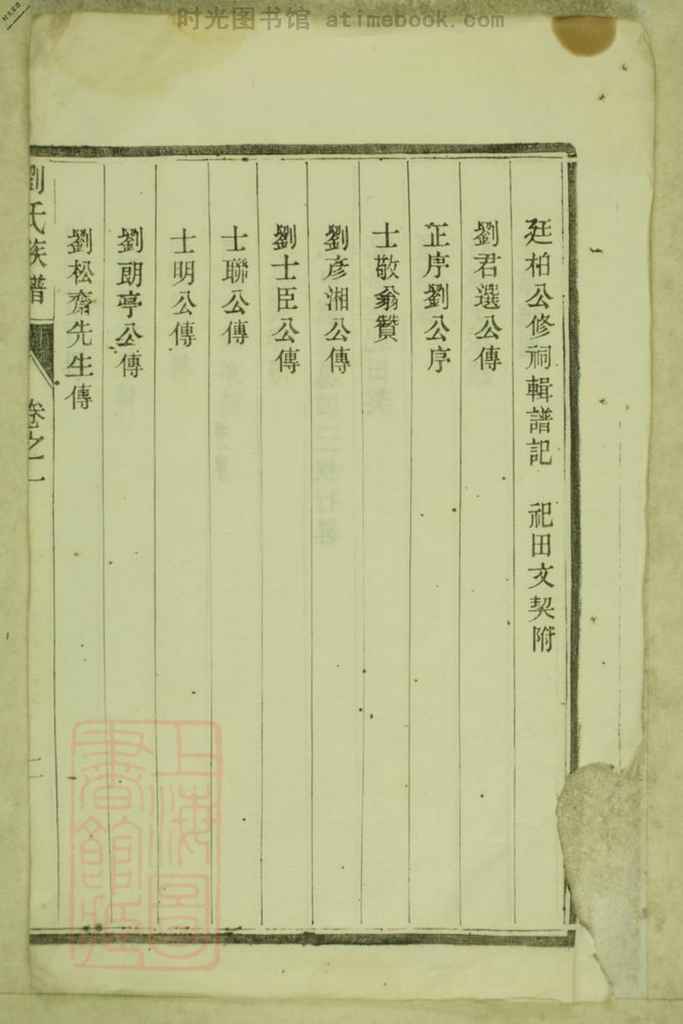 时光图书馆 atimebook.com
廷柏公修祠輯譜記 祀田文契附
劉君選公傳
正序劉公序
士敬翁贊
劉彥湘公傳
劉士臣公傳
士聯公傳
士明公傳
劉朗亭公傳
劉松齋先生傳
劉氏族譜 卷之一 二
上海圖書館藏